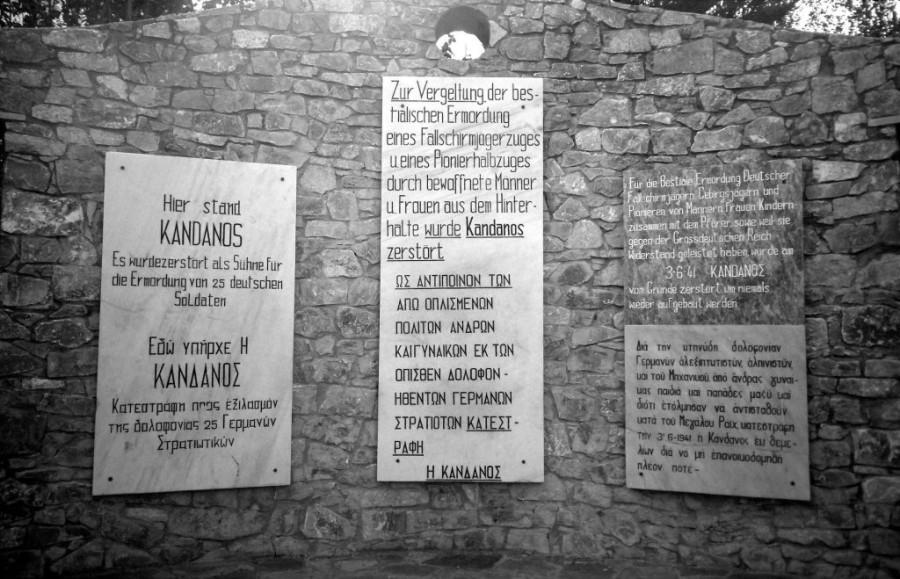 Hier stand
KANDANOS
Es wurdezerstört als Sühne für
die Ermordung von 25 deutschen
Soldaten
Ἐδώ υπῆρχε Η
ΚΑΝΔΑΝΟΣ
Κατεστράφη προς ἐξιλασμόν
τῆς δολοφονίας 25 Γερμανών
Στρατιωτικών
Zur Vergeltung der bes-
tialischen Ermordung
eines Fallschirmjägerzuges
u. eines Pionierhalbzuges
durch bewaffnete Männer
u. Frauen aus dem Hinter-
halte wurde Kandanos
zerstört.
ΩΣ ΑΝΤΙΠΟΙΝΟΝ ΤΩΝ
ΑΠΟ ΟΠΛΙΣΜΕΝΟΝ
ΠΟΛΙΤΩΝ ΑΝΔΡΩΝ
ΚΑΙ ΓΥΝΑΙΚΩΝ ΕΚ ΤΩΝ
ΟΠΙΣΘΕΝ ΔΟΛΟΦΟΝ-
ΗΘΕΝΤΩΝ ΓΕΡΜΑΝΩΝ
ΣΤΡΑΤΙΟΤΩΝ ΚΑΤΕΣΤ-
ΡΑΦΗ
Η ΚΑΝΔΑΝΟΣ
Für die Bestiale Ermordung Deutscher
Fallschirmjägern, Gebirgsjägern und
Pionieren von Männern, Frauen, Kindern
zusammen mit dem Pfarrer sowie weil sie
gegen der Grossdeutschen Reich
Widerstand geleistet haben, wurde am
3·6·41 KANDANOS
vom Grunde zerstört um niemals
wieder aufgebaut werden
Διά την κτηνώδη δολοφονίαν
Γερμανών ἀλεξιπτωτιστών, ἀλπινιστών,
και τοῦ Μηχανικοῦ ἀπό ἄνδρας γυναί-
κας παιδιά και παπάδες μαζύ και
διότι ἐτόλμησαν να ἀντισταθοῦν
κατά τοῦ Μεγάλου Ράιχ κατεστράφη
την 3-6-1941 ἡ Κάνδανος ἐκ θεμε-
λίων διά να μη ἐπανοικοδομηθῆ
πλέον ποτέ-